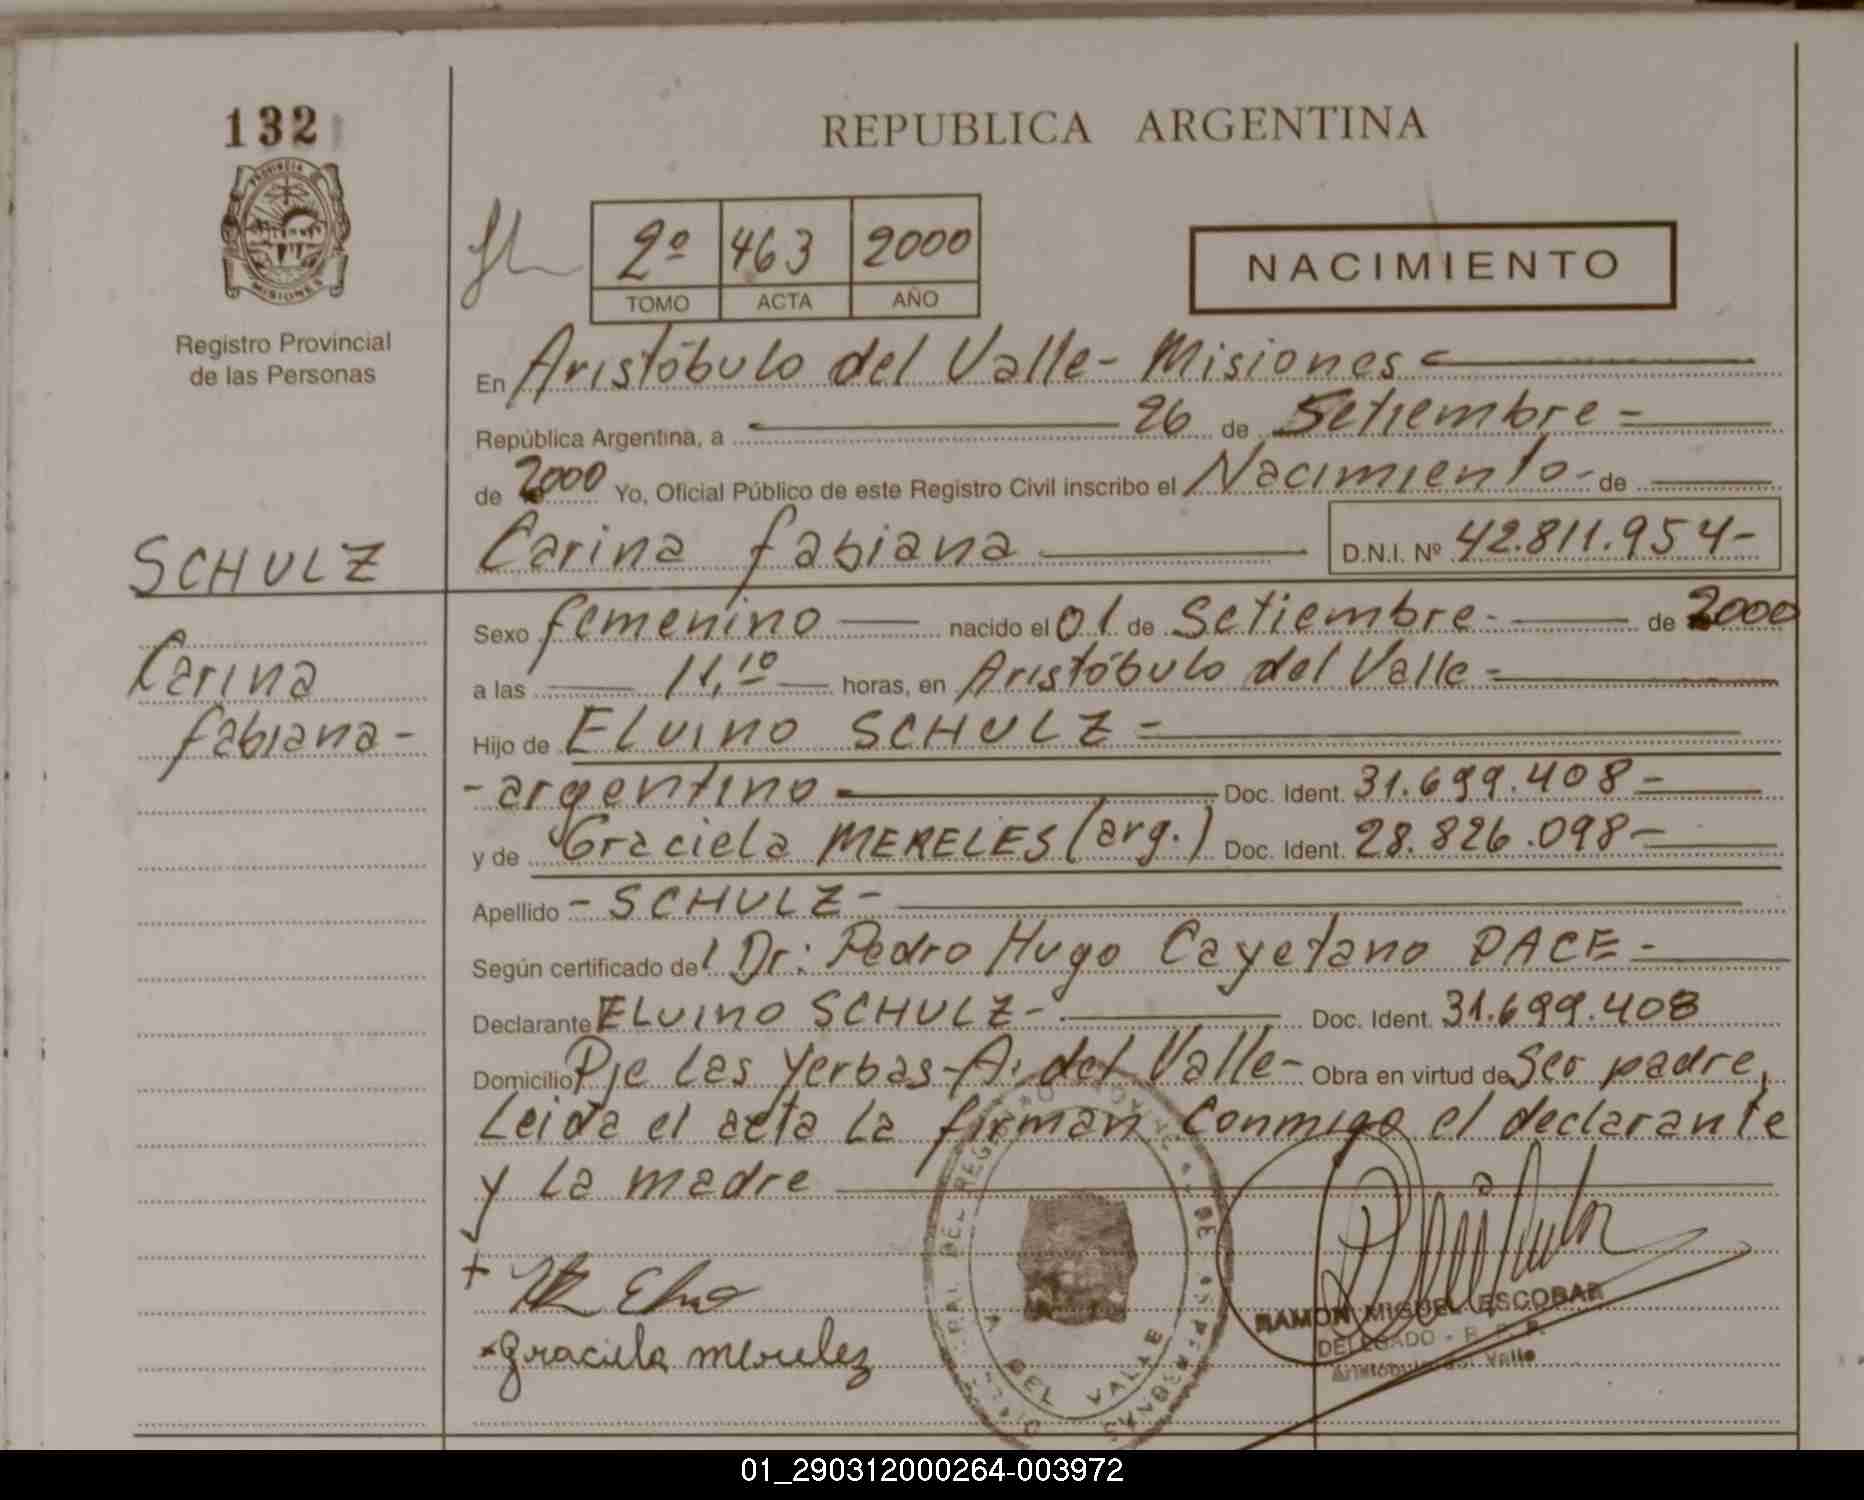 132
REPUBLICA ARGENTINA
PROVINCIA
MISIONES
Registro Provincial
de las Personas
2º 463 2000
TOMO ACTA AÑO
NACIMIENTO
En Aristóbulo del Valle- Misiones
República Argentina, a 26 de Setiembre =
de 2000 Yo, Oficial Público de este Registro Civil inscribo el Nacimiento- de
SCHULZ
Carina Fabiana D.N.I. Nº 42.811.954-
Carina
Fabiana-
Sexo femenino nacido el 01 de Setiembre- de 2000
a las 11,10 horas, en Aristóbulo del Valle-
Hijo de ELVINO SCHULZ =
- argentino Doc. Ident. 31.699.408-
y de Graciela MERELES (arg.) Doc. Ident. 28.826.098-
Apellido - SCHULZ -
Según certificado del Dr: Pedro Hugo Cayetano PACE-
Declarante ELVINO SCHULZ- Doc. Ident. 31.699.408
Domicilio Pje Las Yerbas-A. del Valle- Obra en virtud de Ser padre,
Leida el acta la firman Conmigo el declarante
y la madre
Graciela mereles
RAMON MIGUEL ESCOBAR
DELEGADO - R. P. P.
Aristóbulo del Valle
DEL VALLE
01_290312000264-003972